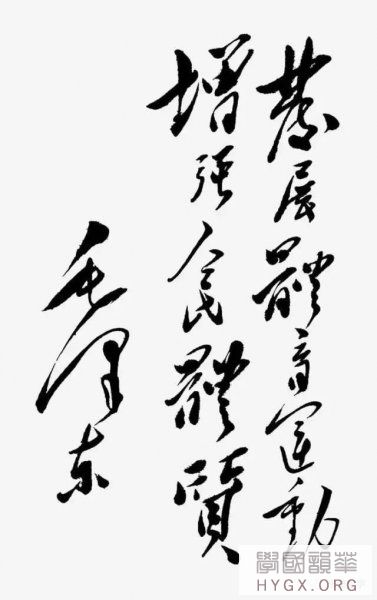 發展體育運動
增强人民體質
毛澤东
學國韻華
HYGX.ORG